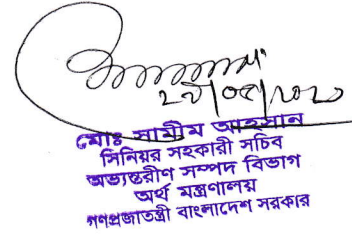 মোঃ সামীম আহসান
সিনিয়র সহকারী সচিব
অভ্যন্তরীণ সম্পদ বিভাগ
অর্থ মন্ত্রণালয়
গণপ্রজাতন্ত্রী বাংলাদেশ সরকার